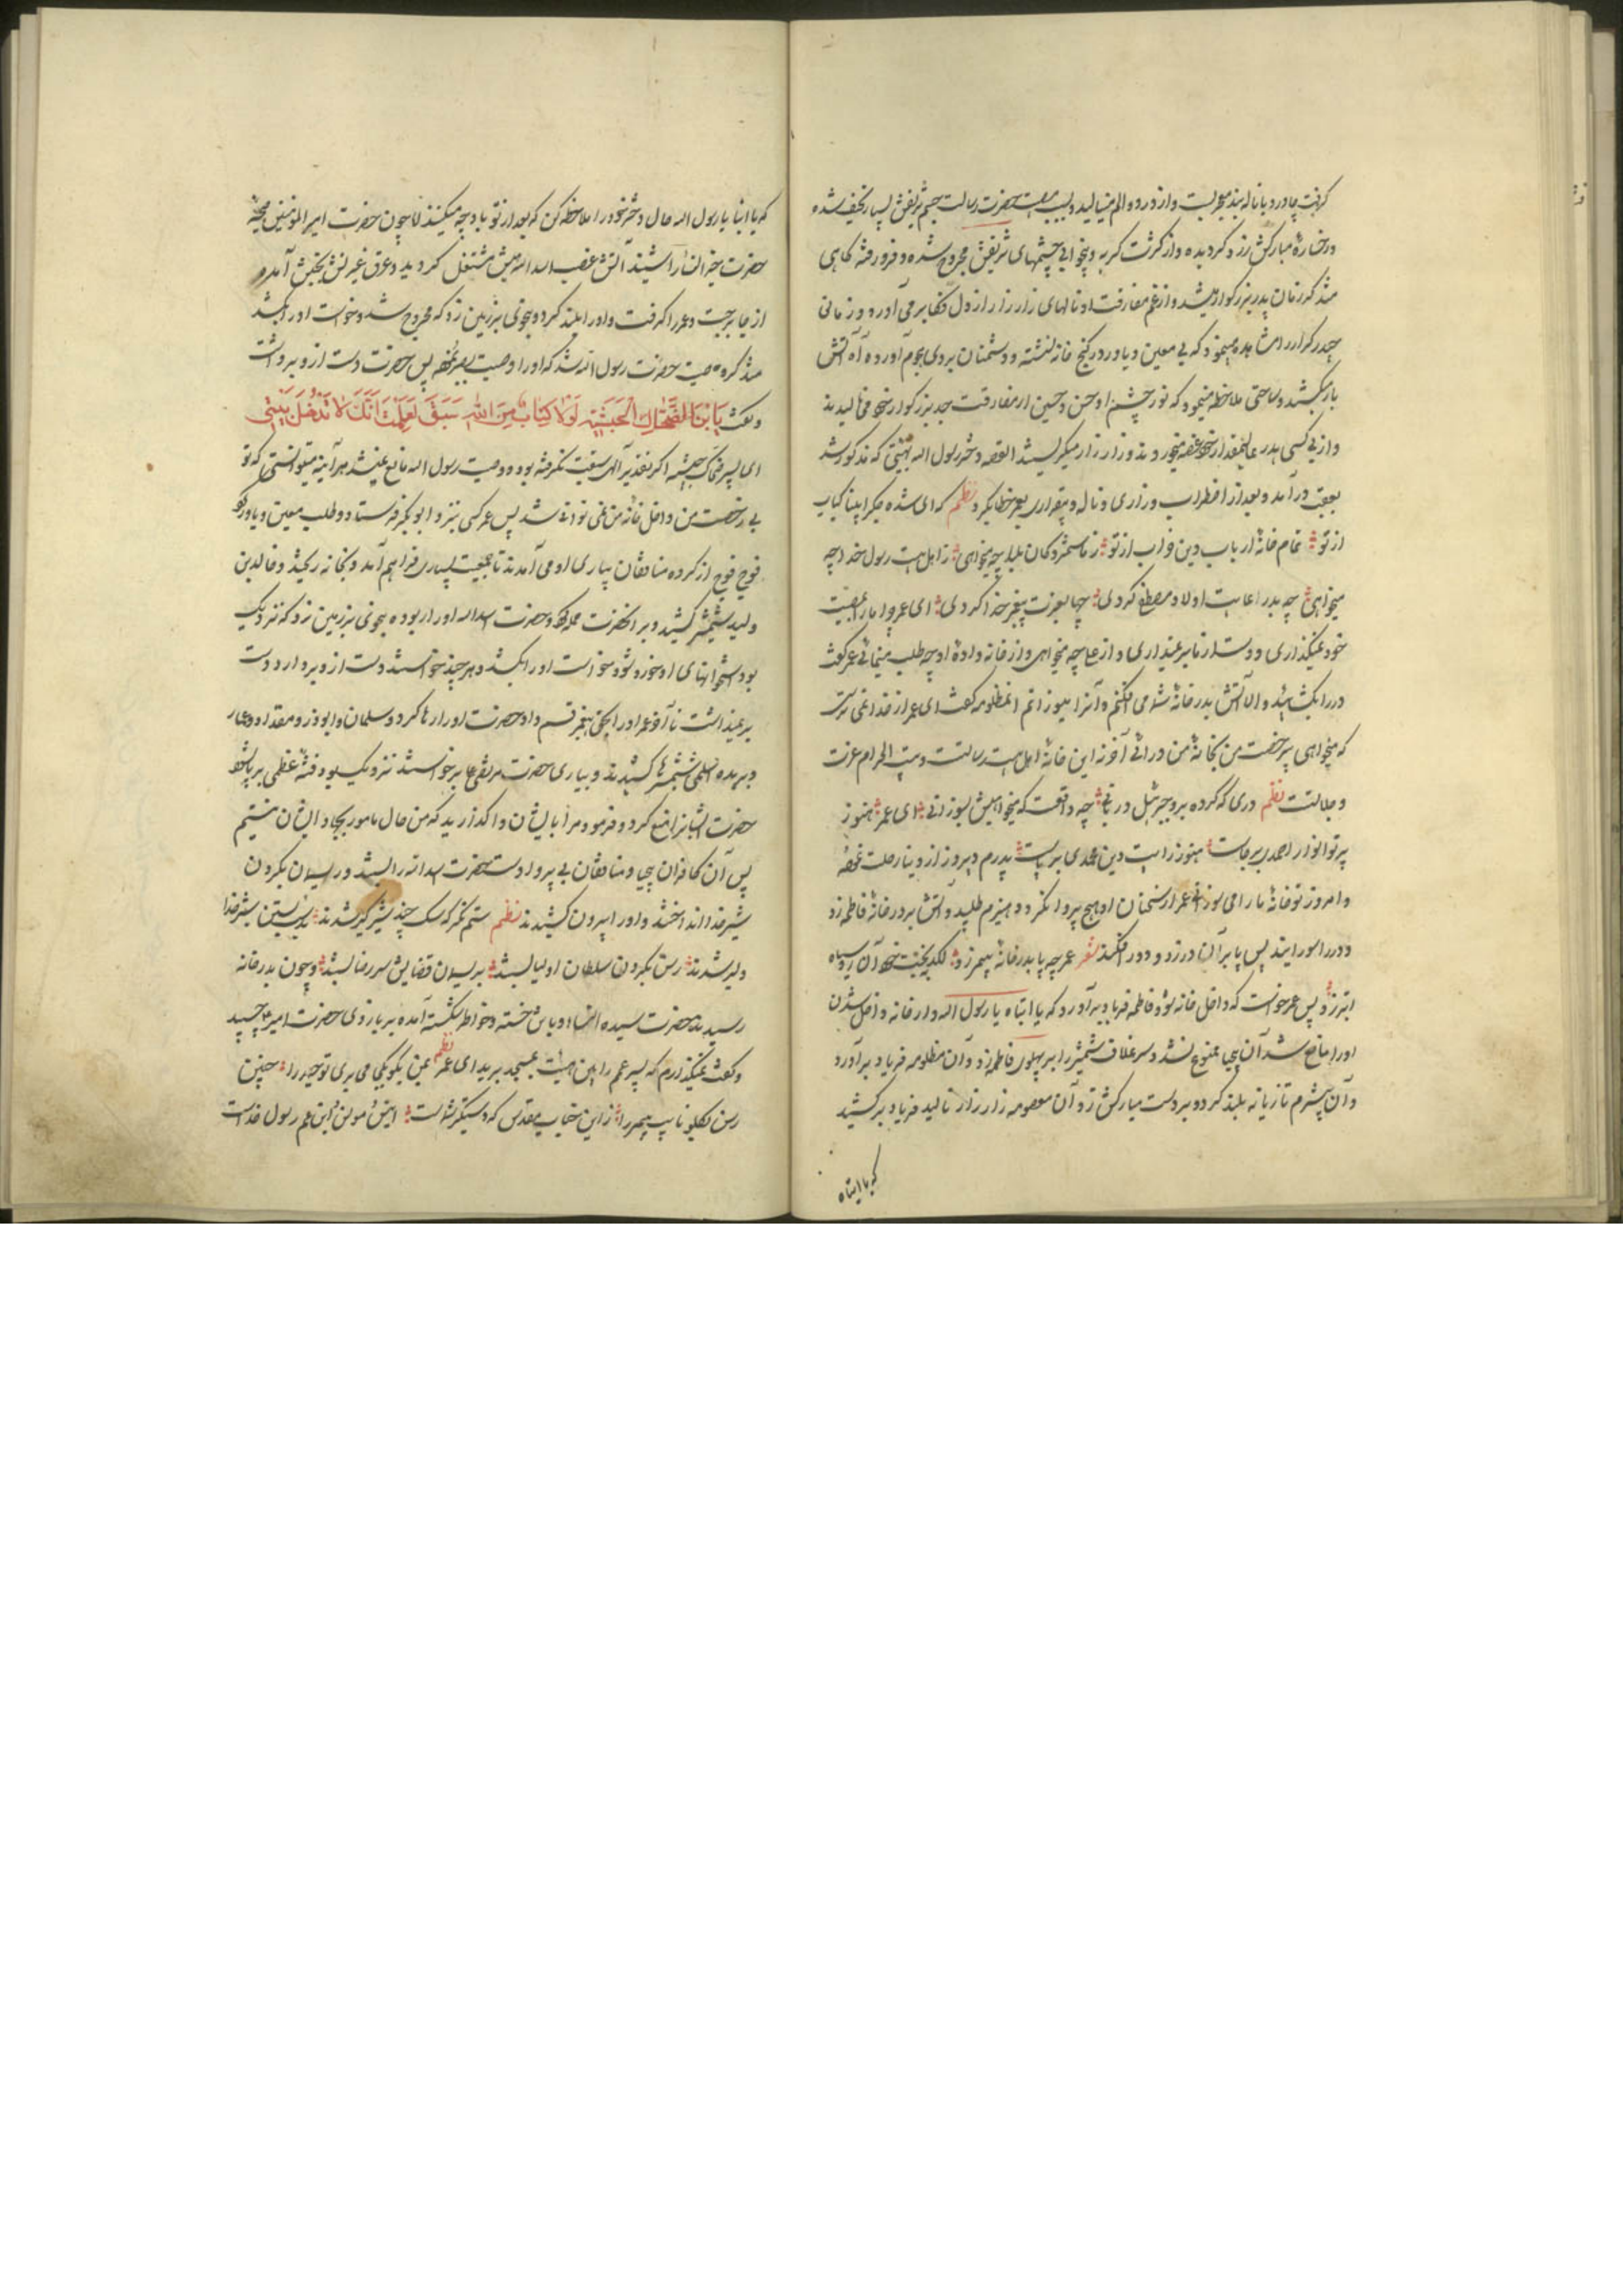 گرفت چادر و با ناله بلند میگریست و از درد و الم مینالید و بسبب مصیبت حضرت رسالت جسم شریفش بسیار نحیف شده
و رخسارهٔ مبارکش زرد گردیده و از کثرت گریه و بیخوابی چشمهای شریفش مجروح شده و فرو رفته گاهی
متذکر زمان پدر بزرگوار میشد و از غم مفارقت او نالهای زار زار از دل بر می آورد و زمانی
حیدر کرار را مشاهده مینمود که بی معین و یاور در کنج خانه نشسته و دشمنان بر وی هجوم آورده آه آتش
بار میکشید و ساعتی ملاحظه مینمود که نور چشم او حسن و حسین از مفارقت جد بزرگوار خود می نالیدند
و از بی کسی پدر عالیمقدار خود غصه میخوردند و زار زار میگریستند القصه دختر رسول الله بهیئتی که مذکور شد
بعقب در آمد و بعد از اضطراب و زاری و ناله و بیقراری بعمر خطاب کرد نظم که ای شده جگر اینیا کباب
از تو تمام خانهٔ ارباب دین خراب از تو ز ما ستمزدگان بلا چه میخواهی ز اهل بیت رسول خدا چه
میخواهی چه بد رعایت اولاد مصطفی کردی چها بعزت پیغمبر خدا کردی ای عمر چرا ما را بمصیبت
خود نمیگذاری و دست از ما بر نمیداری و از ما چه میخواهی و از خانه دادهٔ او چه طلب مینمائی عمر گفت
در را بگشائید و الا آتش بدر خانهٔ شما می افکنم و آنرا میسوزانم آن مظلومه گفت ای عمر از خدا نمی ترسی
که میخواهی بی رخصت من بخانهٔ من در آئی آخر نه این خانهٔ اهل بیت رسالت و بیت الحرام عزت
و جلالتست نظم دری که کرده برو جبرئیل دربانی چه واقعست که میخواهیش بسوزانی ای عمر هنوز
پرتو انوار احمدی بر جاست هنوز رایت دین محمدی بر پاست پدرم دیروز از دنیا رحلت نموده
و امروز تو خانهٔ ما را می سوزانی عمر از سخنان او هیچ پروا نکرد و هیزم طلبید و آتش بر در خانهٔ فاطمه زد
و در را سوزانید پس پا بر آن در زد و دور افکند شعر عمر چه پا بدر خانهٔ پیمبر زد لگد ببخت خود آن روسیاه
ابتر زد پس عمر خواست که داخل خانه شود فاطمه فریاد بر آورد که یا ابتاه یا رسول الله و از خانه داخل شدن
او را مانع شد آن بیحیا ممنوع نشد و سر غلاف شمشیر را بر پهلوی فاطمه زد و آن مظلومه فریاد بر آورد
و آن بیشرم تازیانه بلند کرد و بر دست مبارکش زد و آن معصومه زار زار نالید و فریاد بر کشید
که یا ابتاه
که یا ابتا یا رسول الله حال دختر خود را ملاحظه کن که بعد از تو با او چه میکنند اما چون حضرت امیر المؤمنین صیحهٔ
حضرت خیر النسا را شنید آتش غضب اسد اللهیش مشتعل گردید و عرق غیرتش بجنبش آمده
از جا برجست و عمر را گرفت و او را بلند کرد و بنحوی بر زمین زد که مجروح شد و خواست او را بکشد
متذکر وصیت حضرت رسول الله شد که او را وصیت بصبر نموده پس حضرت دست از و برداشت
و گفت یَا بْنَ الضَّحَّاكِ الْحَبَشِیَّةِ لَوْلَا كِتَابٌ مِنَ اللّٰهِ سَبَقَ لَعَلِمْتَ اَنَّكَ لَا تَدْخُلُ بَیْتِی
ای پسر ضحاک حبشیه اگر تقدیر الهی سبقت نگرفته بود و وصیت رسول الله مانع نمیشد هر آینه میدانستی که تو
بی رخصت من داخل خانه من نمی توانی شد پس عمر کسی بنزد ابو بکر فرستاد و طلب معین و یاور کرد
فوج فوج از گروه منافقان بیاری او می آمدند تا جمعیت بسیاری فراهم آمد و بخانه ریختند و خالد بن
ولید شمشیر کشید و بر آنحضرت حمله کرد و حضرت اسد الله او را ربوده بنحوی بر زمین زد که نزدیک
بود استخوانهای او خورد شود و خواست او را بکشد و هر چند خواستند دست از و بر دارد دست
بر نمیداشت تا آخر عمر او را بحق پیغمبر قسم داد حضرت او را رها کرد و سلمان و ابوذر و مقداد و عمار
و بریده اسلمی شمشیرها کشیدند و بیاری حضرت مرتضی علی برخواستند نزدیک بود فتنهٔ عظمی بر پا شود
حضرت ایشانرا منع کرد و فرمود مرا با ایشان وا گذارید که من حال مامور بجهاد ایشان نیستم
پس آن کافران بیحیا و منافقان بی پروا دست حضرت اسد الله را بستند و ریسمان بگردن
شیر خدا انداختند و او را بیرون کشیدند نظم ستم نگر که سگ چند شیر گیر شدند به بستن شیر خدا
دلیر شدند رسن بگردن سلطان اولیا بستند بریسمان قضا پیش سر رضا بستند و چون بدر خانه
رسیدند حضرت سیدة النساء با تن خسته و خواطر شکسته آمده بر بازوی حضرت امیر چسپید
و گفت نمیگذارم که پسر عمم را باین هیئت بمسجد برید ای عمر نظم بمن بگو بکجا می بری تو حیدر را چنین
رسن بگلو نایب پیمبر را ز این جناب مقدس که دستگیر شماست انیس و مونس و ابن عم رسول خداست